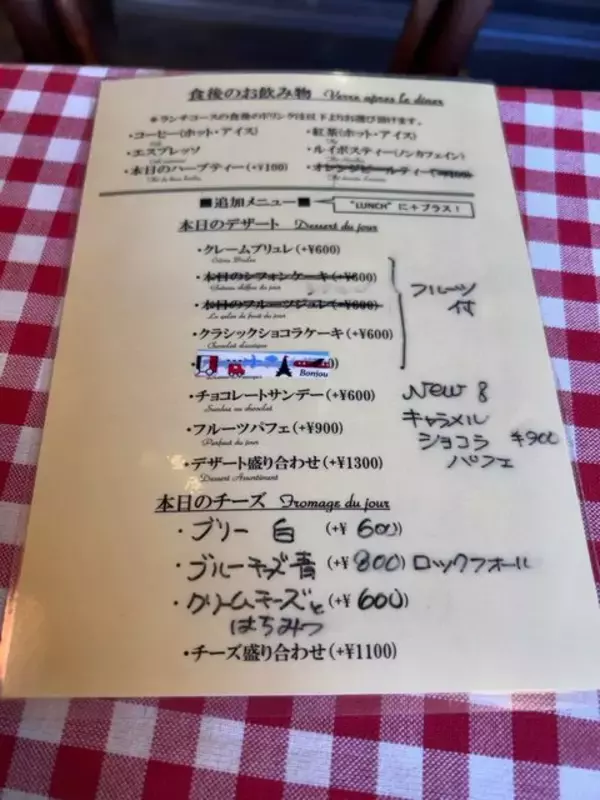 食後のお飲み物 Verre apres le diner
※ランチコースの食後のドリンクは以下よりお選び頂けます。
・コーヒー(ホット・アイス) ・紅茶(ホット・アイス)
・エスプレッソ ・ルイボスティー(ノンカフェイン)
・本日のハーブティー(+¥100) ・オレンジピールティー(+¥100)
■追加メニュー■ "LUNCH"に+プラス!
本日のデザート Dessert du jour
・クレームブリュレ(+¥600)
・本日のシフォンケーキ(+¥600)
・本日のフルーツジュレ(+¥600)
フルーツ
付
・クラシックショコラケーキ(+¥600)
Chocolat classique
Bonjou
・チョコレートサンデー(+¥600)
Sundae au chocolat
NEW
キャラメル
ショコラ ¥900
パフェ
・フルーツパフェ(+¥900)
Parfait du jour
・デザート盛り合わせ(+¥1300)
Dessert Assortiment
本日のチーズ Fromage du jour
・ブリー 白 (+¥600)
・ブルーチーズ青 (+¥800) ロックフォール
・クリームチーズと (+¥600)
はちみつ
・チーズ盛り合わせ(+¥1100)